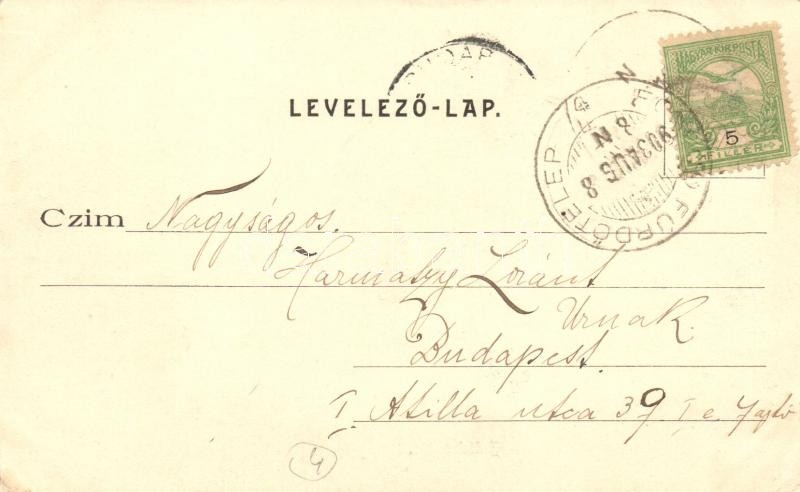 LEVELEZŐ-LAP.
MAGYAR KIR. POSTA
5
FILLÉR
FÜRDŐTELEP
903 AUG 8
BUDAP
Czim Nagyságos.
Harmatzy Loránt
Urnak.
Budapest.
I Attilla utca 39 I e 7 ajtó
4